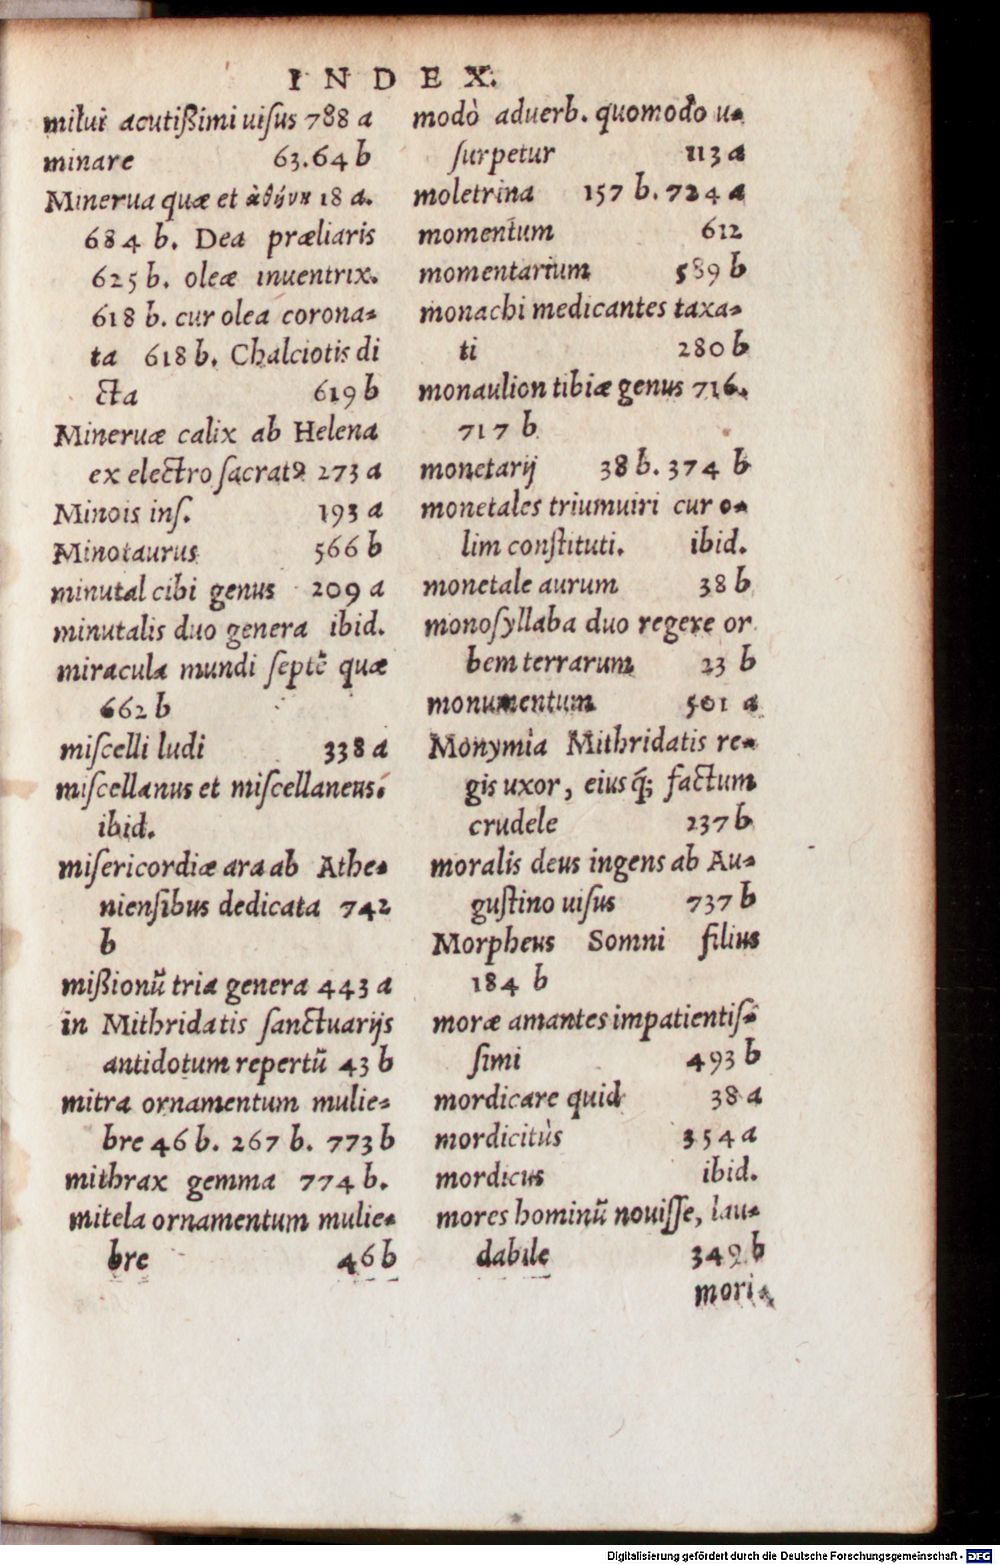 INDEX.
milui acutißimi uiſus 788 a
minare 63.64 b
Minerua quæ et ἀθήνη 18 a.
684 b. Dea præliaris
625 b. oleæ inuentrix.
618 b. cur olea corona-
ta 618 b. Chalciotis di
cta 619 b
Mineruæ calix ab Helena
ex electro ſacratꝰ 273 a
Minois inſ. 193 a
Minotaurus 566 b
minutal cibi genus 209 a
minutalis duo genera ibid.
miracula mundi ſeptē quæ
662 b
miſcelli ludi 338 a
miſcellanus et miſcellaneus.
ibid.
miſericordiæ ara ab Athe-
nienſibus dedicata 742
b
mißionū tria genera 443 a
in Mithridatis ſanctuarijs
antidotum repertū 43 b
mitra ornamentum mulie-
bre 46 b. 267 b. 773 b
mithrax gemma 774 b.
mitela ornamentum mulie-
bre 46 b
modò aduerb. quomodo u-
ſurpetur 113 a
moletrina 157 b. 724 a
momentum 612
momentarium 589 b
monachi medicantes taxa-
ti 280 b
monaulion tibiæ genus 716.
717 b
monetarij 38 b. 374 b
monetales triumuiri cur o-
lim conſtituti. ibid.
monetale aurum 38 b
monoſyllaba duo regere or
bem terrarum 23 b
monumentum 501 a
Monymia Mithridatis re-
gis uxor, eiusq́; factum
crudele 237 b
moralis deus ingens ab Au-
guſtino uiſus 737 b
Morpheus Somni filius
184 b
moræ amantes impatientiſ-
ſimi 493 b
mordicare quid 38 a
mordicitùs 354 a
mordicus ibid.
mores hominū nouiſſe, lau-
dabile 349 b
mori-
Digitalisierung gefördert durch die Deutsche Forschungsgemeinschaft - DFG